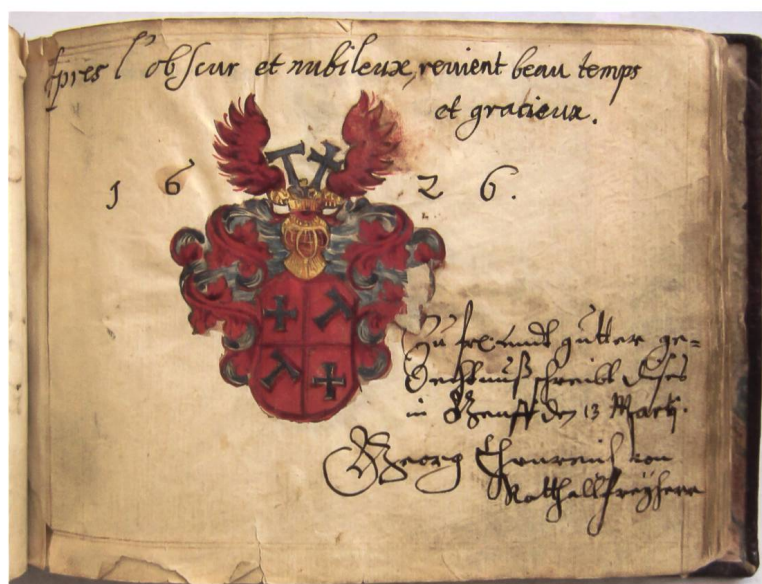 Apres l'obscur et nubileux, revient beau temps
et gracieux.
1 6 2 6.
Zu gutter ge=
dechtnuß schreibt dises
in Genff den 13 Martij.
Georg Ehrnreich von
Rotthall freyherr